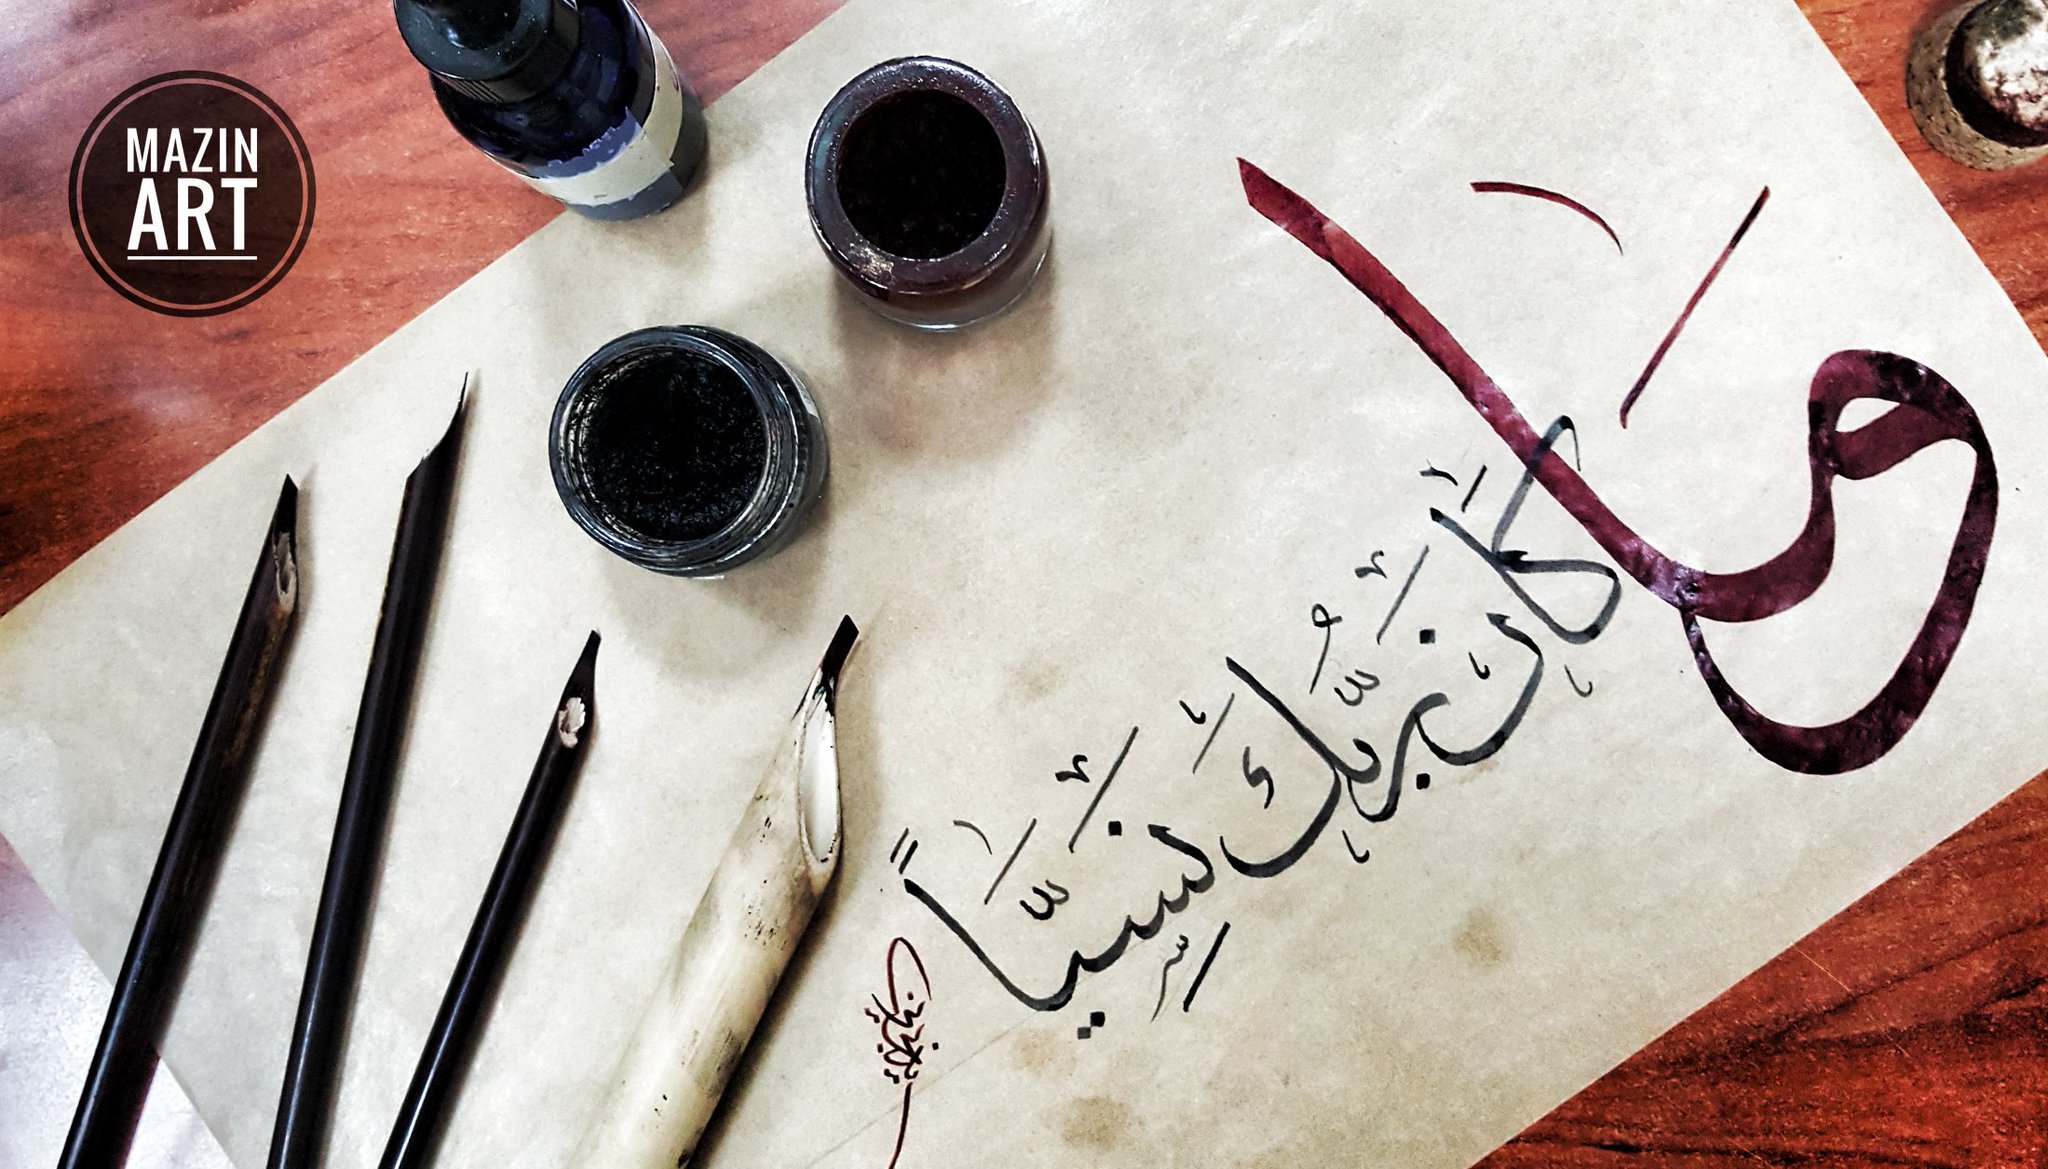 MAZIN
ART
وَمَا
كَانَ رَبُّكَ نَسِيّاً